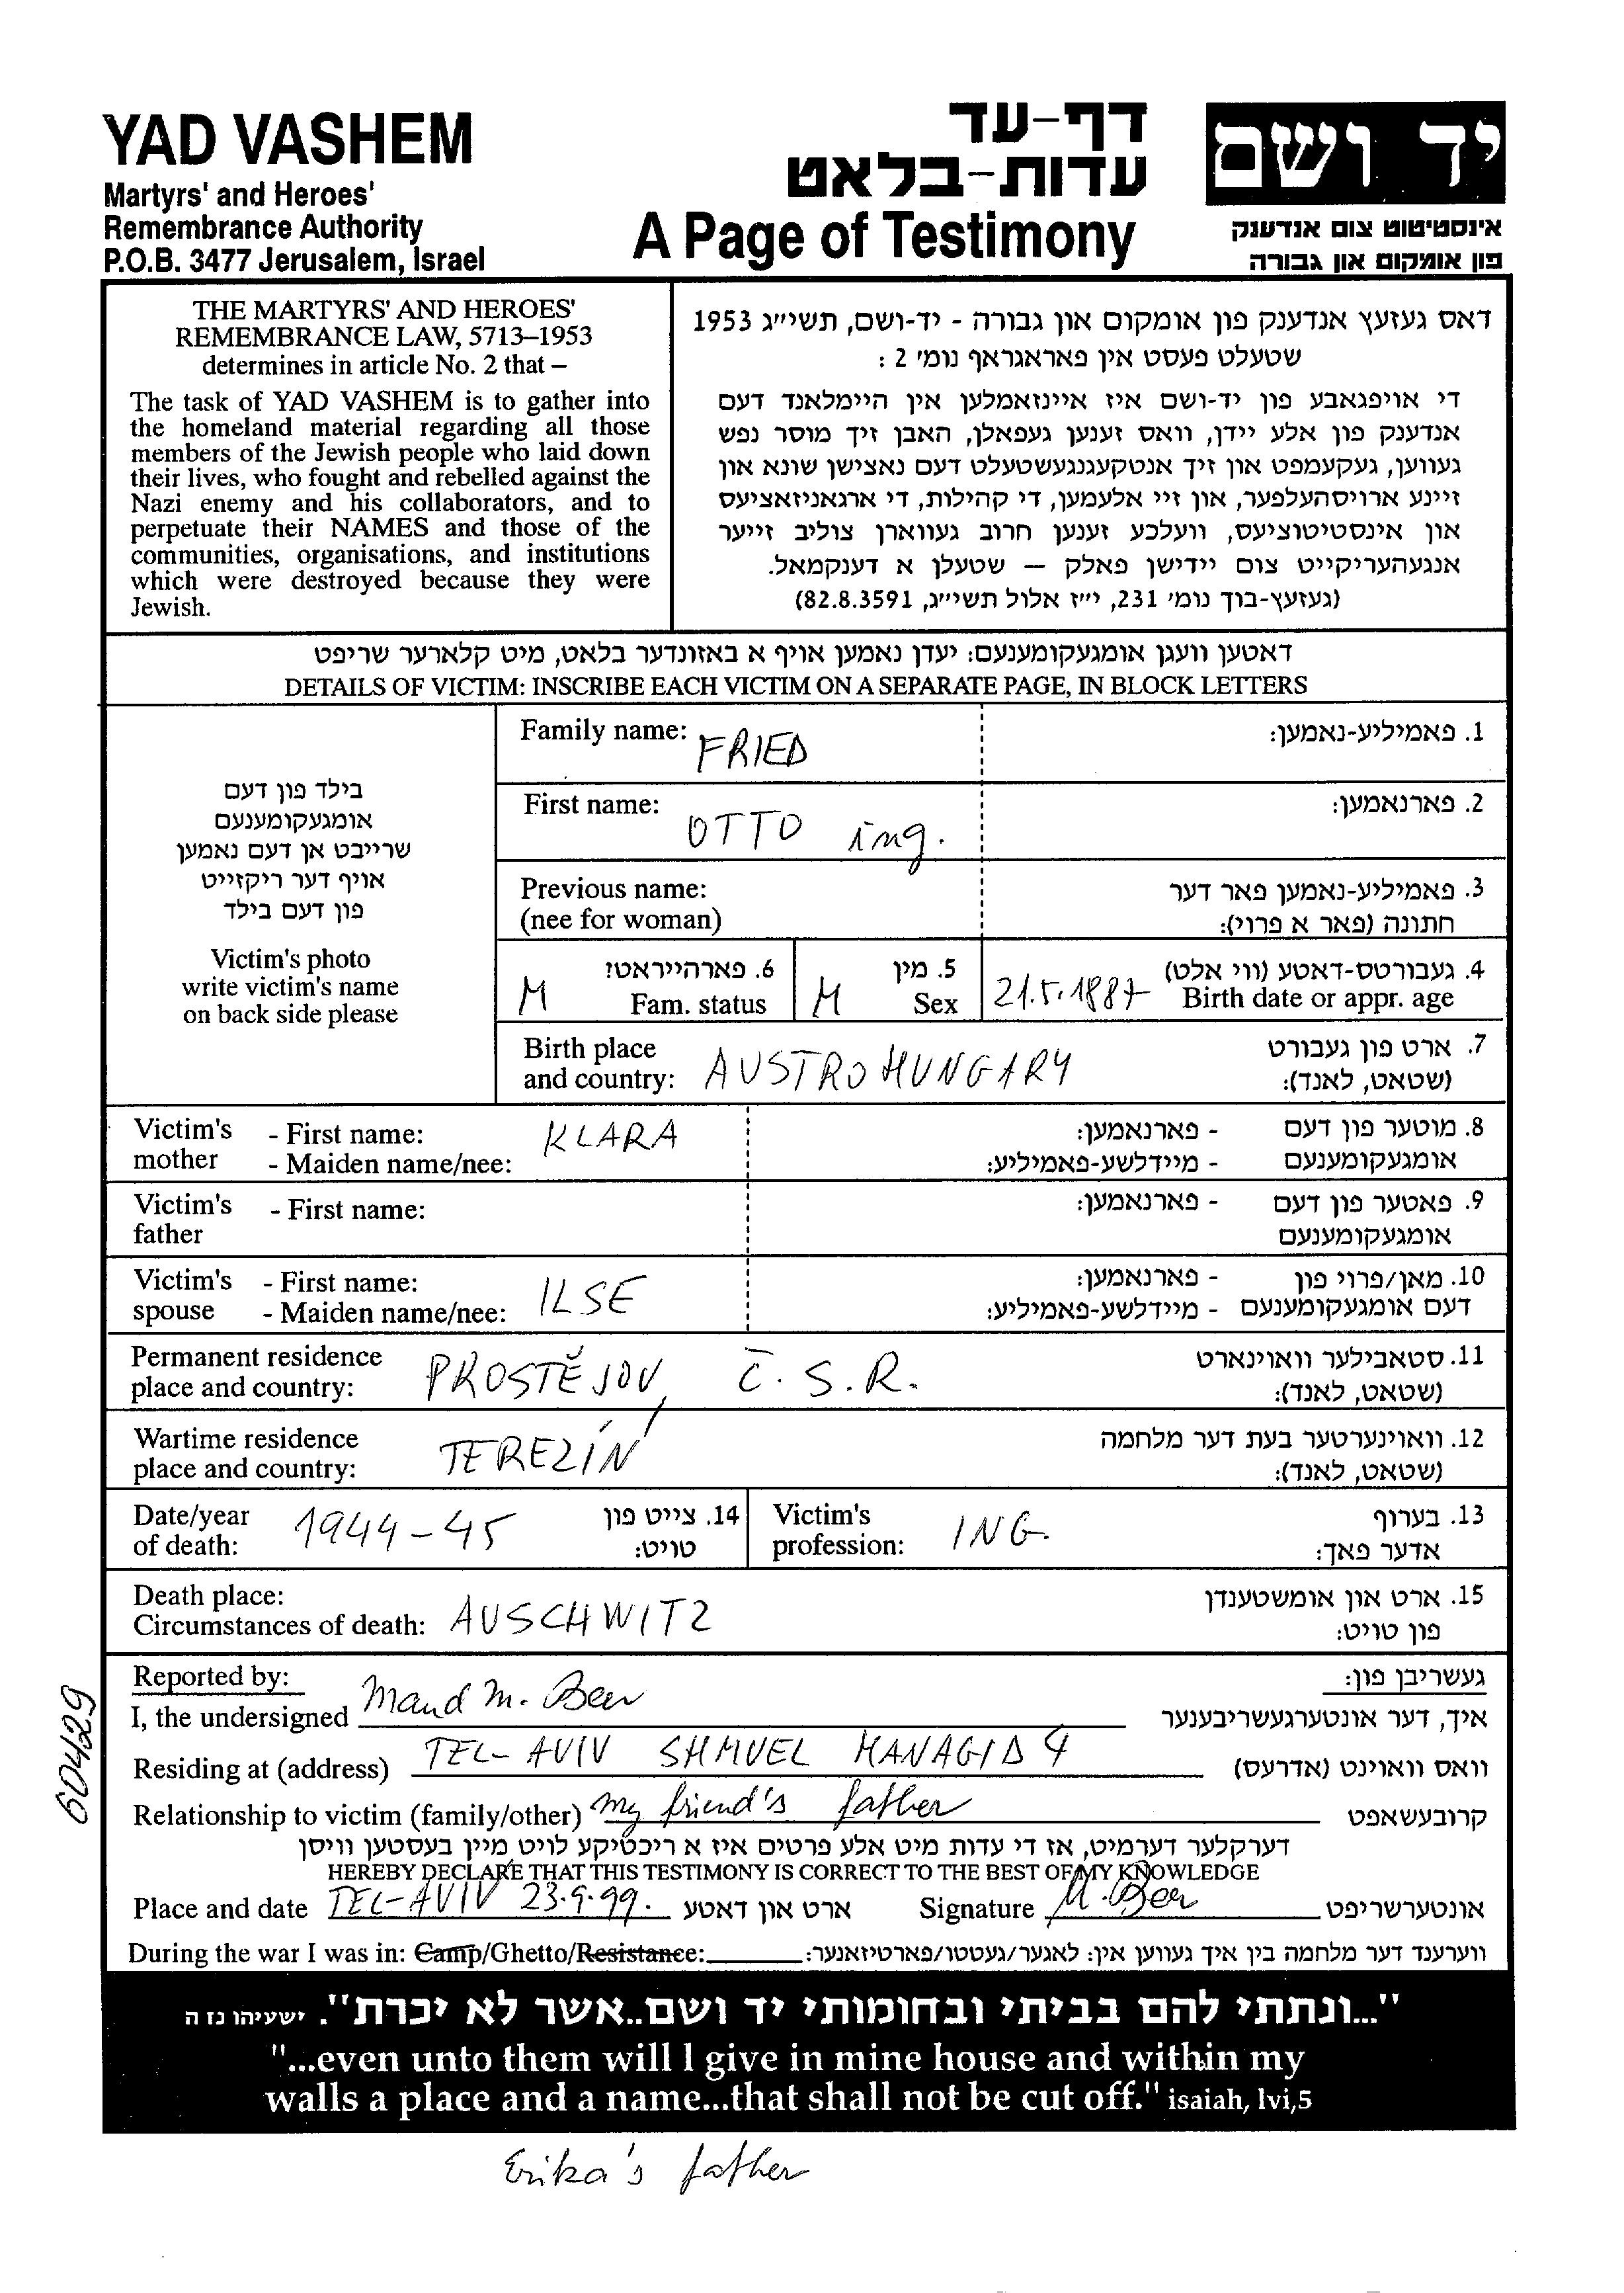 YAD VASHEM
Martyrs' and Heroes'
Remembrance Authority
P.O.B. 3477 Jerusalem, Israel
דף-עד
עדות-בלאט
A Page of Testimony
יד ושם
אינסטיטוט צום אנדענק
פון אומקום און גבורה
THE MARTYRS' AND HEROES'
REMEMBRANCE LAW, 5713–1953
determines in article No. 2 that –
The task of YAD VASHEM is to gather into
the homeland material regarding all those
members of the Jewish people who laid down
their lives, who fought and rebelled against the
Nazi enemy and his collaborators, and to
perpetuate their NAMES and those of the
communities, organisations, and institutions
which were destroyed because they were
Jewish.
דאס געזעץ אנדענק פון אומקום און גבורה - יד-ושם, תשי״ג 1953
שטעלט פעסט אין פאראגראף נומ׳ 2 :
די אויפגאבע פון יד-ושם איז איינזאמלען אין היימלאנד דעם
אנדענק פון אלע יידן, וואס זענען געפאלן, האבן זיך מוסר נפש
געווען, געקעמפט און זיך אנטקעגנגעשטעלט דעם נאצישן שונא און
זיינע ארויסהעלפער, און זיי אלעמען, די קהילות, די ארגאניזאציעס
און אינסטיטוציעס, וועלכע זענען חרוב געווארן צוליב זייער
אנגעהעריקייט צום יידישן פאלק – שטעלן א דענקמאל.
(געזעץ-בוך נומ׳ 231, י״ז אלול תשי״ג, 82.8.3591)
דאטען וועגן אומגעקומענעם: יעדן נאמען אויף א באזונדער בלאט, מיט קלארער שריפט
DETAILS OF VICTIM: INSCRIBE EACH VICTIM ON A SEPARATE PAGE, IN BLOCK LETTERS
בילד פון דעם
אומגעקומענעם
שרייבט אן דעם נאמען
אויף דער ריקזייט
פון דעם בילד
Victim's photo
write victim's name
on back side please
Family name: FRIED 1. פאמיליע-נאמען:
First name: OTTO ing. 2. פארנאמען:
Previous name: 3. פאמיליע-נאמען פאר דער
(nee for woman) חתונה (פאר א פרוי):
M 6. פארהייראט? M 5. מין 21.5.1887 4. געבורטס-דאטע (ווי אלט)
Fam. status Sex Birth date or appr. age
Birth place 7. ארט פון געבורט
and country: AUSTROHUNGARY (שטאט, לאנד):
Victim's - First name: KLARA - פארנאמען: 8. מוטער פון דעם
mother - Maiden name/nee: - מיידלשע-פאמיליע: אומגעקומענעם
Victim's - First name: - פארנאמען: 9. פאטער פון דעם
father אומגעקומענעם
Victim's - First name: ILSE - פארנאמען: 10. מאן/פרוי פון
spouse - Maiden name/nee: - מיידלשע-פאמיליע: דעם אומגעקומענעם
Permanent residence 11. סטאבילער וואוינארט
place and country: PROSTĚJOV, Č.S.R. (שטאט, לאנד):
Wartime residence 12. וואוינערטער בעת דער מלחמה
place and country: TEREZÍN (שטאט, לאנד):
Date/year 1944-45 14. צייט פון Victim's ING. 13. בערוף
of death: טויט: profession: אדער פאך:
Death place: 15. ארט און אומשטענדן
Circumstances of death: AUSCHWITZ פון טויט:
Reported by: געשריבן פון:
I, the undersigned Maud M. Beer איך, דער אונטערגעשריבענער
Residing at (address) TEL-AVIV SHMUEL HANAGID 4 וואס וואוינט (אדרעס)
Relationship to victim (family/other) my friend's father קרובעשאפט
דערקלער דערמיט, אז די עדות מיט אלע פרטים איז א ריכטיקע לויט מיין בעסטען וויסן
HEREBY DECLARE THAT THIS TESTIMONY IS CORRECT TO THE BEST OF MY KNOWLEDGE
Place and date TEL-AVIV 23.9.99. ארט און דאטע Signature M. Beer אונטערשריפט
During the war I was in: Camp/Ghetto/Resistance: ווערענד דער מלחמה בין איך געווען אין: לאגער/געטטו/פארטיזאנער:
60429
"...ונתתי להם בביתי ובחומותי יד ושם..אשר לא יכרת". ישעיהו נז ה
"...even unto them will I give in mine house and within my
walls a place and a name...that shall not be cut off." isaiah, lvi,5
Erika's father